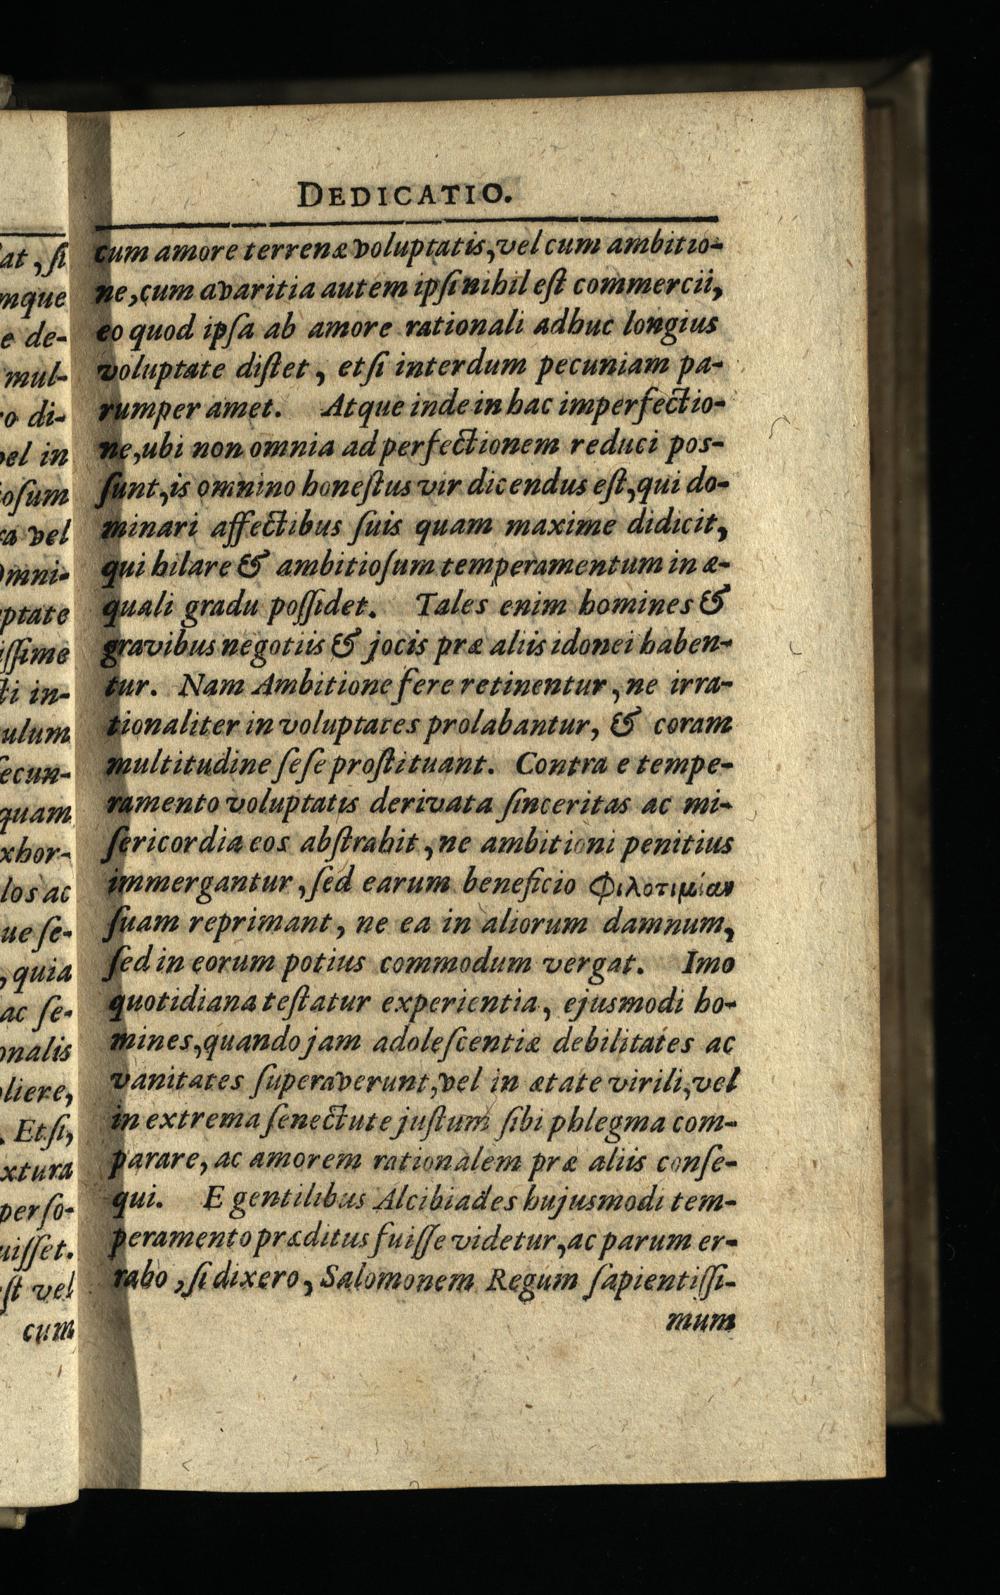 DEDICATIO.
cum amore terrenæ voluptatis, vel cum ambitio-
ne, cum avaritia autem ipsi nihil est commercii,
eo quod ipsa ab amore rationali adhuc longius
voluptate distet, etsi interdum pecuniam pa-
rumper amet. Atque inde in hac imperfectio-
ne, ubi non omnia ad perfectionem reduci pos-
sunt, is omnino honestus vir dicendus est, qui do-
minari affectibus suis quam maxime didicit,
qui hilare & ambitiosum temperamentum in æ-
quali gradu possidet. Tales enim homines &
gravibus negotiis & jocis præ aliis idonei haben-
tur. Nam Ambitione fere retinentur, ne irra-
tionaliter in voluptates prolabantur, & coram
multitudine sese prostituant. Contra e tempe-
ramento voluptatis derivata sinceritas ac mi-
sericordia eos abstrahit, ne ambitioni penitius
immergantur, sed earum beneficio Φιλοτιμίαν
suam reprimant, ne ea in aliorum damnum,
sed in eorum potius commodum vergat. Imo
quotidiana testatur experientia, ejusmodi ho-
mines, quando jam adolescentiæ debilitates ac
vanitates superaverunt, vel in ætate virili, vel
in extrema senectute justum sibi phlegma com-
parare, ac amorem rationalem præ aliis conse-
qui. E gentilibus Alcibiades hujusmodi tem-
peramento præditus fuisse videtur, ac parum er-
rabo, si dixero, Salomonem Regum sapientissi-
mum
at, si
mque
e de-
mul-
ro di-
vel in
iosum
ra vel
Omni-
uptate
issime
cti in-
ulum
secun-
quam
xhor-
los ac
ue se-
, quia
ac se-
onalis
liere,
. Etsi,
xtura
perso-
uisset.
est vel
cum